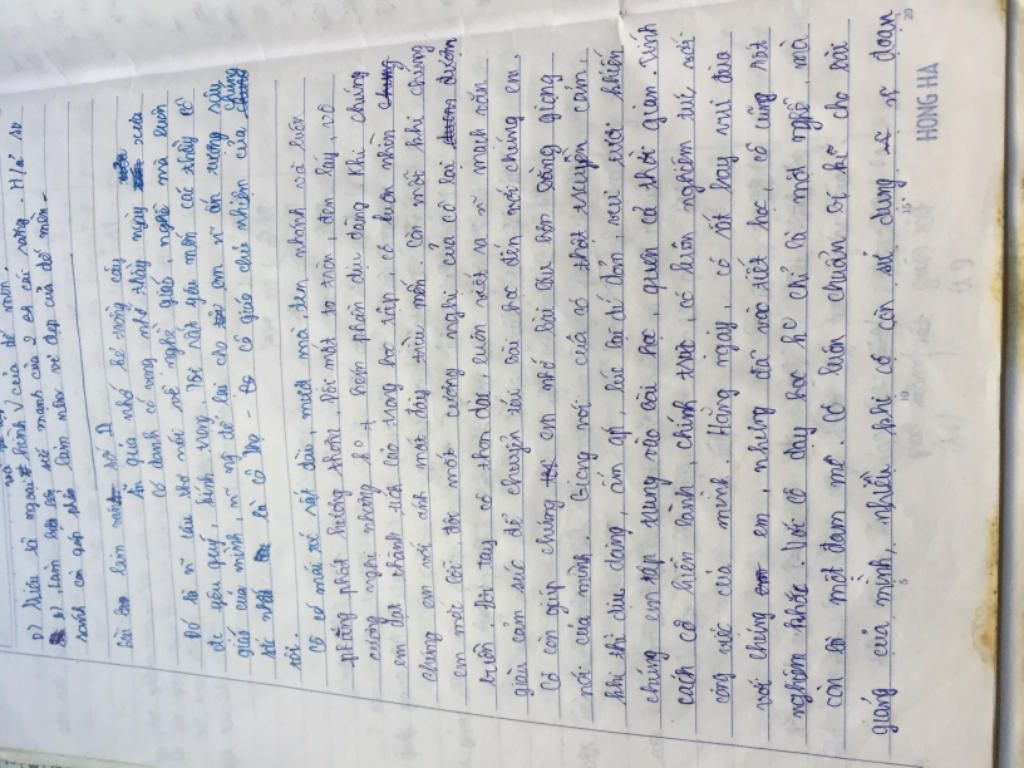 dế mèn.
D) Miêu tả ngoại hình của 2 cái răng. H/ả so
b) Làm sức mạnh của 2 cái răng
sánh còn góp phần làm nên vẻ đẹp của dế mèn.
Bài làm số 2
Ai già nhớ kẻ trồng cây
Có danh có vọng nhớ thầy ngày xưa
Đó là n~ câu thơ nói về nghề giáo, nghề mà luôn
đc yêu quý, kính trọng. Tôi rất yêu mến các thầy cô
giáo của mình, n~ ng để lại cho em n~ ấn tượng sâu
sắc nhất là cô - cô giáo chủ nhiệm của chúng
tôi.
Cô có mái tóc rất dài, mượt mà đen nhánh và luôn
phảng phất hương thơm. Đôi mắt to tròn, đen láy, vô
cùng nghị nhưng ko phần dịu dàng. Khi chúng
em đạt thành tích cao trong học tập, cô luôn nhìn
chúng em với ánh mắt đầy trìu mến. Còn mỗi khi chúng
em mắc lỗi đôi mắt cương nghị của cô lại đượm
buồn. Đôi tay cô thon dài, luôn viết ra n~ mạch văn
giàu cảm xúc để chuyển tải bài học đến với chúng em.
Cô còn giúp chúng em nhớ bài lâu hơn bằng giọng
nói của mình. Giọng nói của cô thật truyền cảm,
khi thì dịu dàng, ấm áp, lúc lại dí dỏm, vui tươi khiến
chúng em tập trung vào bài học, quên cả thời gian. Tính
cách cô hiền lành, chính trực, cô luôn nghiêm túc với
công việc của mình. Hằng ngày, cô rất hay vui đùa
với chúng em, nhưng đã vào tiết học, cô cũng rất
nghiêm khắc. Với cô dạy học ko chỉ là một nghề, mà
còn là một đam mê. Cô luôn chuẩn bị kĩ cho bài
giảng của mình, nhiều khi cô còn sử dụng n~ đoạn
HONG HA
5
10
15
20